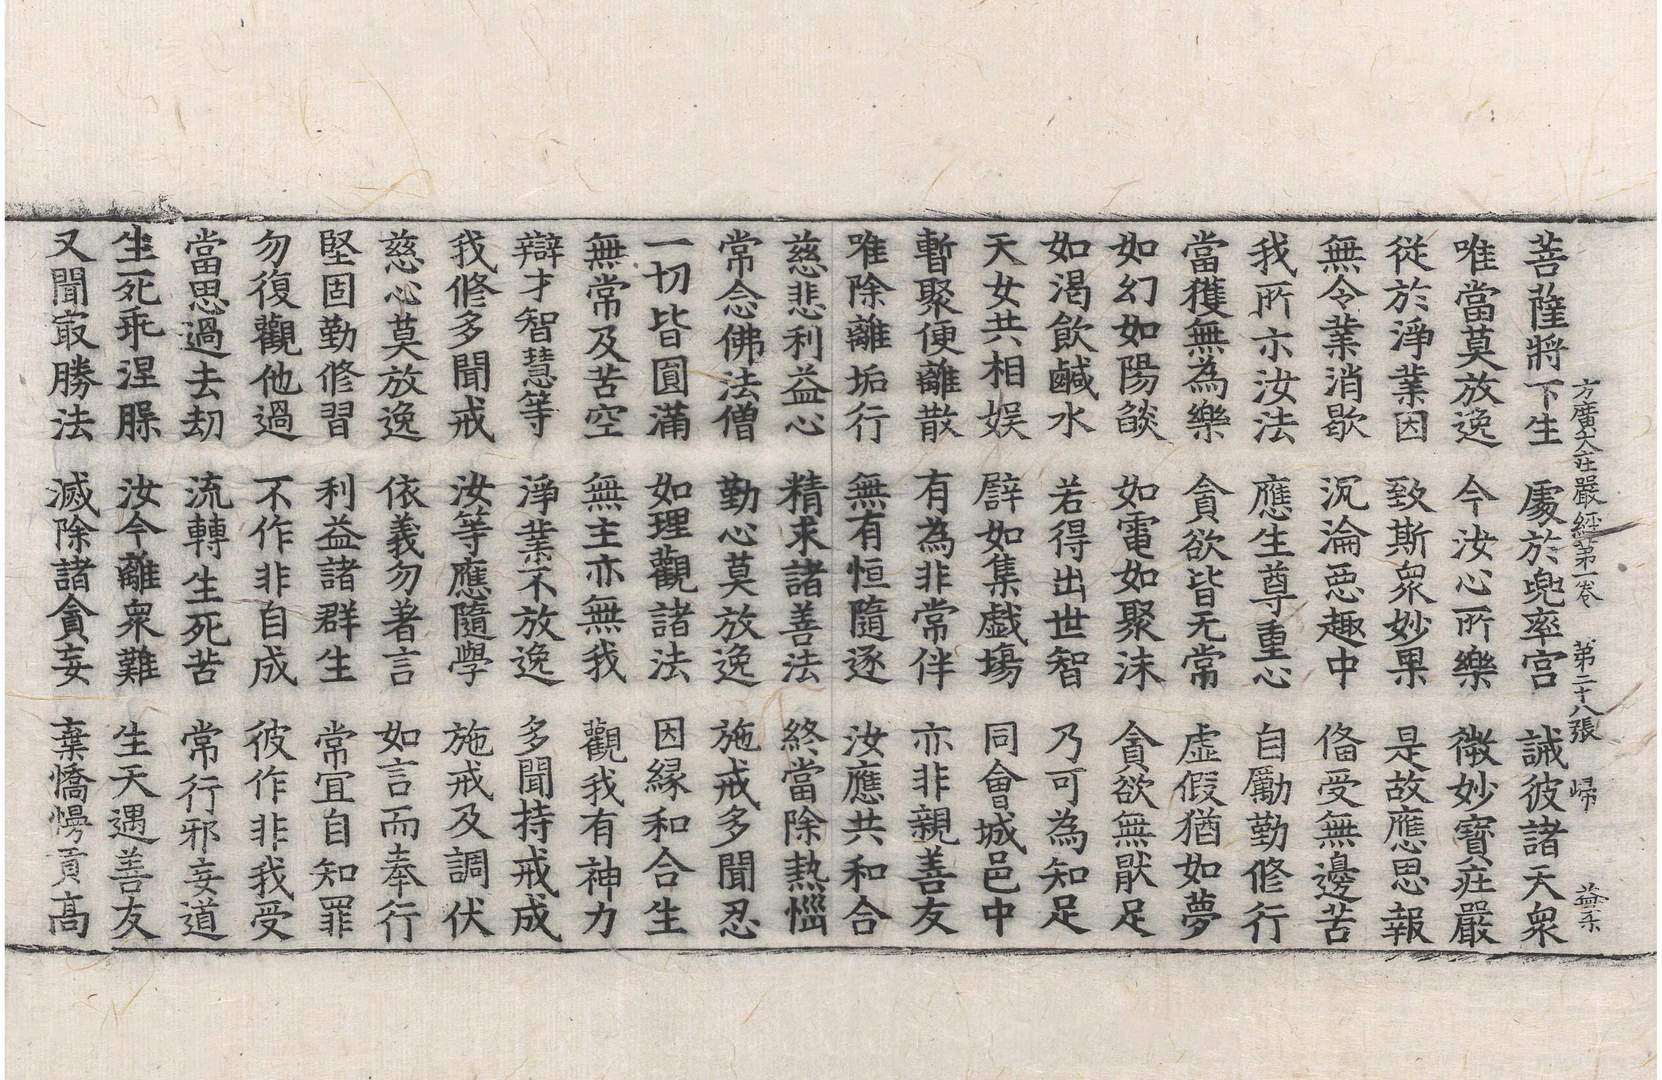 方廣大莊嚴經第一卷 第二十八張 歸 益柔
菩薩將下生 處於兜率宮 誡彼諸天衆
唯當莫放逸 今汝心所樂 微妙寶莊嚴
從於淨業因 致斯衆妙果 是故應思報
無令業消歇 沉淪惡趣中 俻受無邊苦
我所示汝法 應生尊重心 自勵勤修行
當獲無為樂 貪欲皆无常 虛假猶如夢
如幻如陽燄 如電如聚沫 貪欲無猒足
如渴飲鹹水 若得出世智 乃可為知足
天女共相娛 譬如集戱場 同會城邑中
暫聚便離散 有為非常伴 亦非親善友
唯除離垢行 無有恒隨逐 汝應共和合
慈悲利益心 精求諸善法 終當除熱惱
常念佛法僧 勤心莫放逸 施戒多聞忍
一切皆圓滿 如理觀諸法 因緣和合生
無常及苦空 無主亦無我 觀我有神力
辯才智慧等 淨業不放逸 多聞持戒成
我修多聞戒 汝等應隨學 施戒及調伏
慈心莫放逸 依義勿著言 如言而奉行
堅固勤修習 利益諸群生 常宜自知罪
勿復觀他過 不作非自成 彼作非我受
當思過去劫 流轉生死苦 常行邪妄道
生死乖涅槃 汝今離衆難 生天遇善友
又聞㝡勝法 滅除諸貪妄 棄憍慢貢高